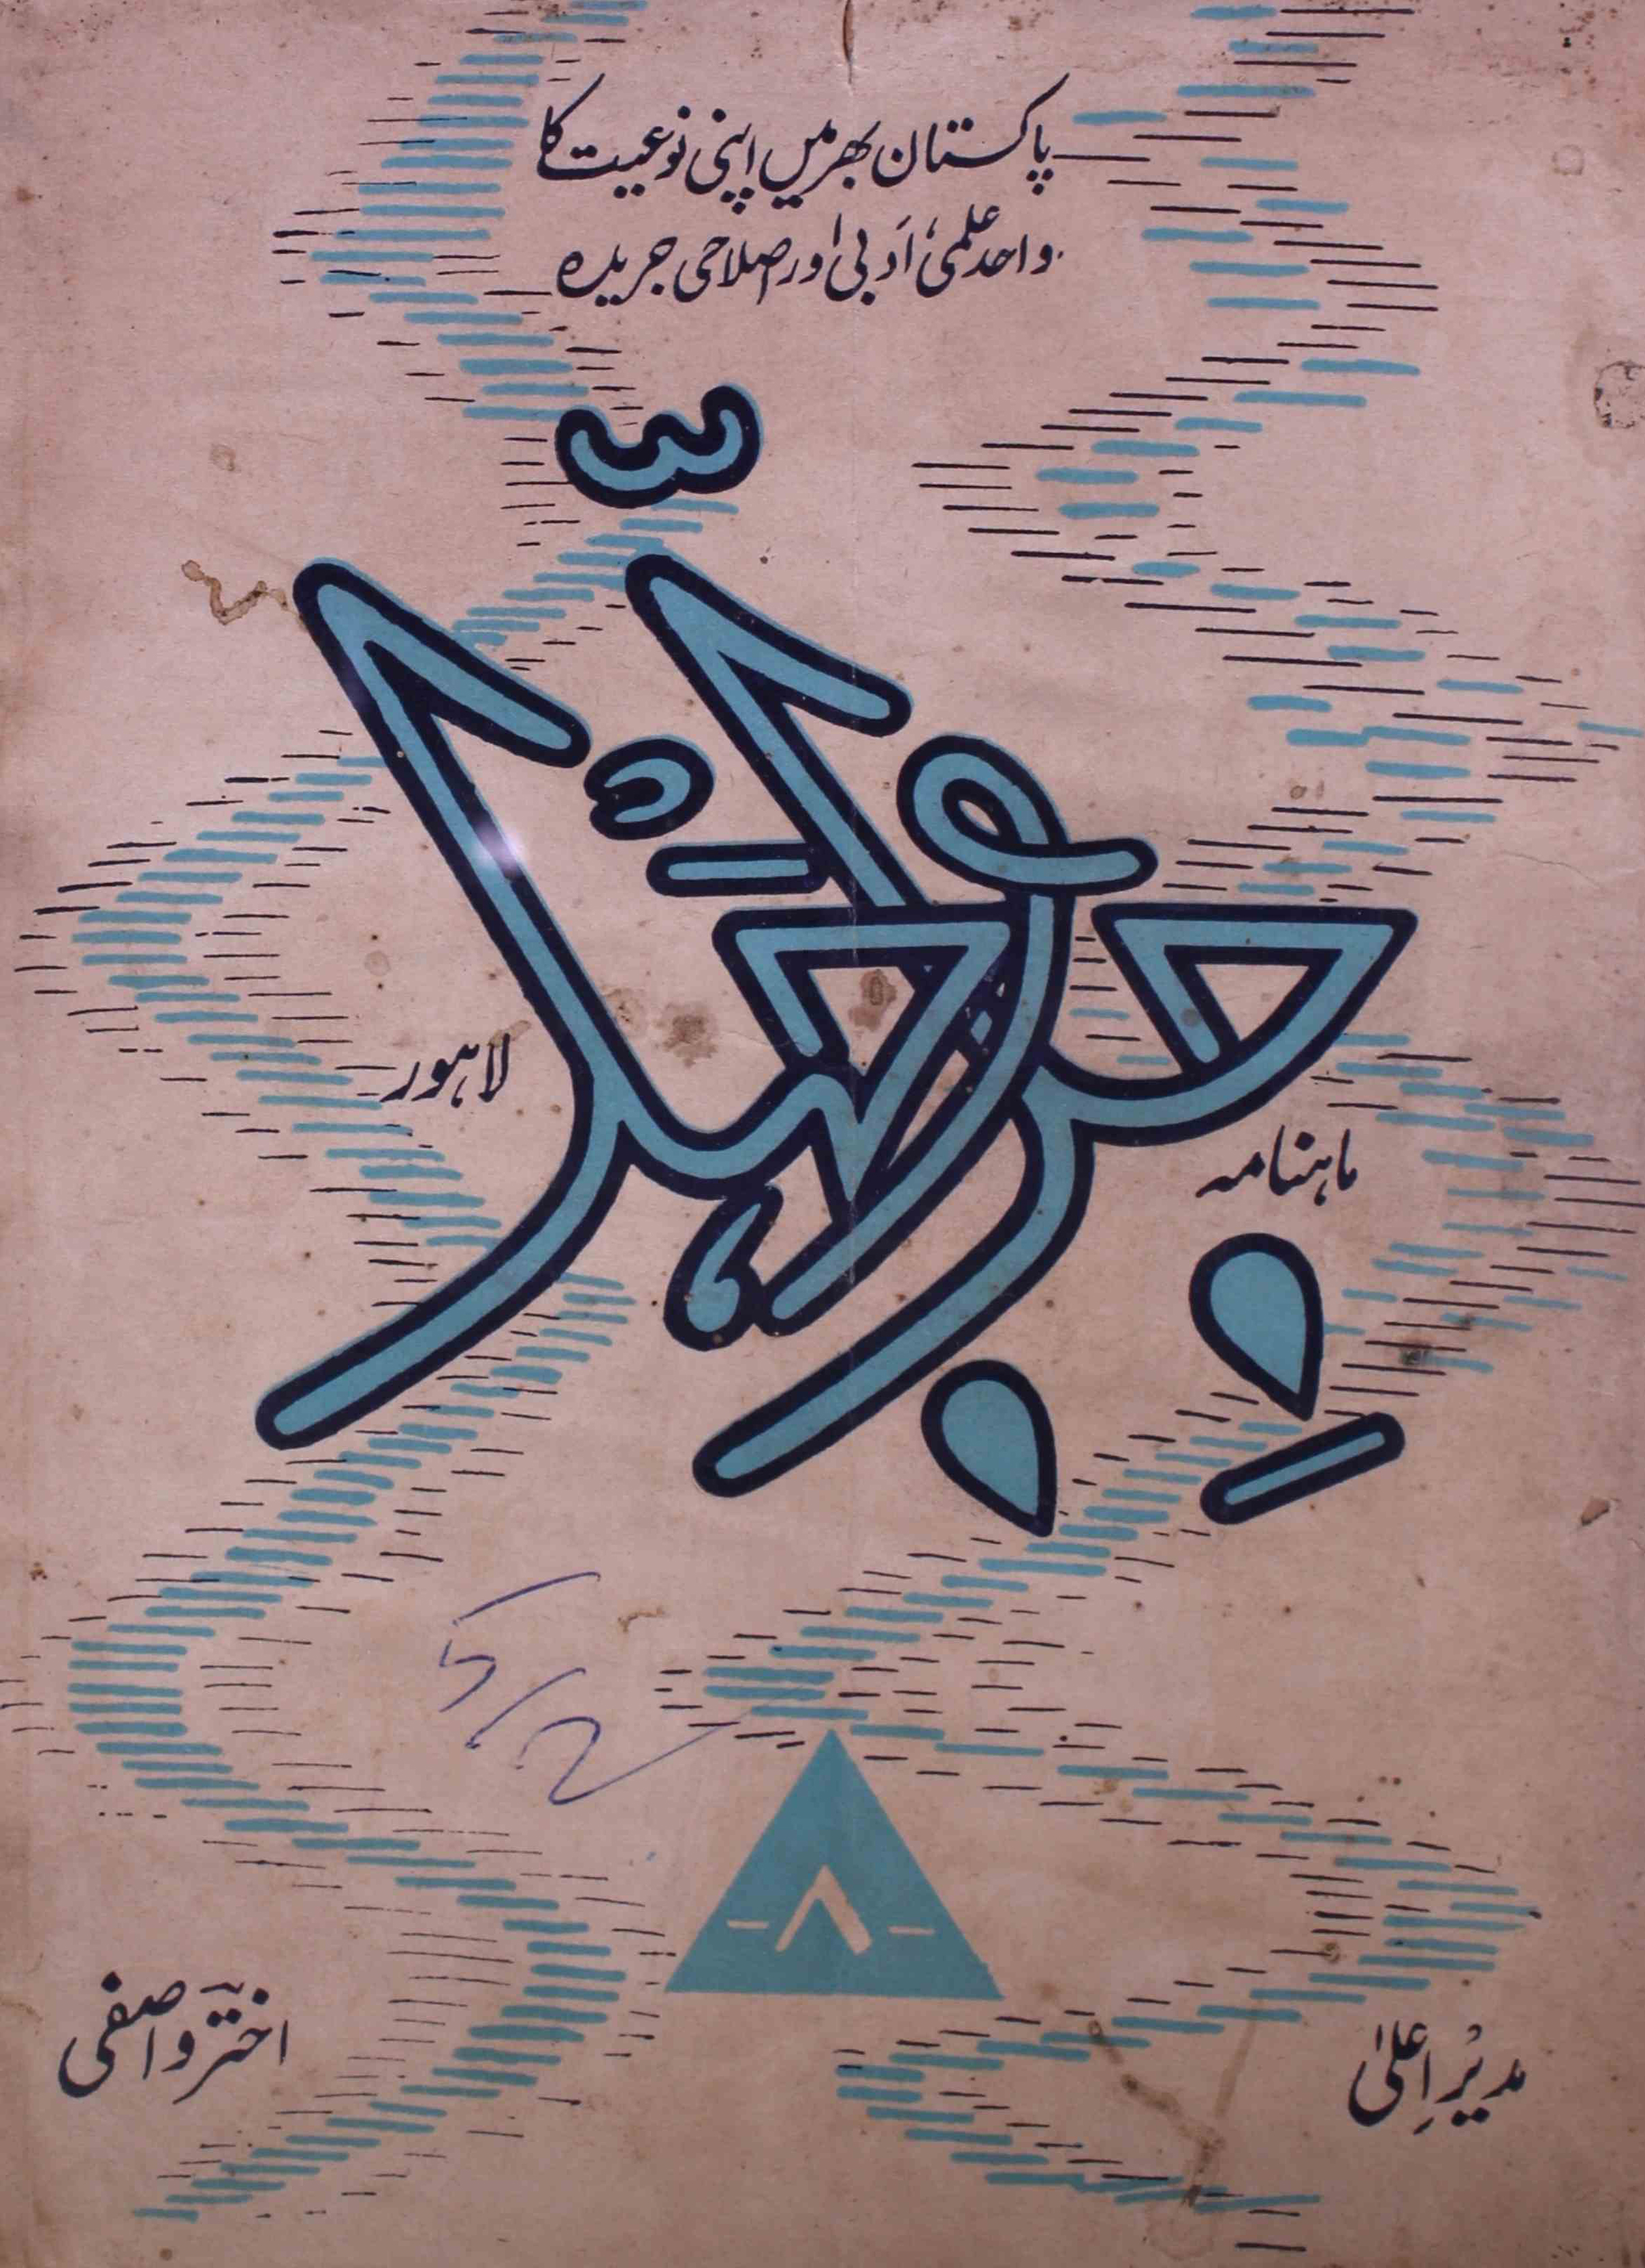 پاکستان بھر میں اپنی نوعیت کا
واحد علمی، اَدبی اور اصلاحی جریدہ
ماہنامہ
جِدّوجَہد
لاہور
-۸-
مدیرِ اعلیٰ
اختر واصفی